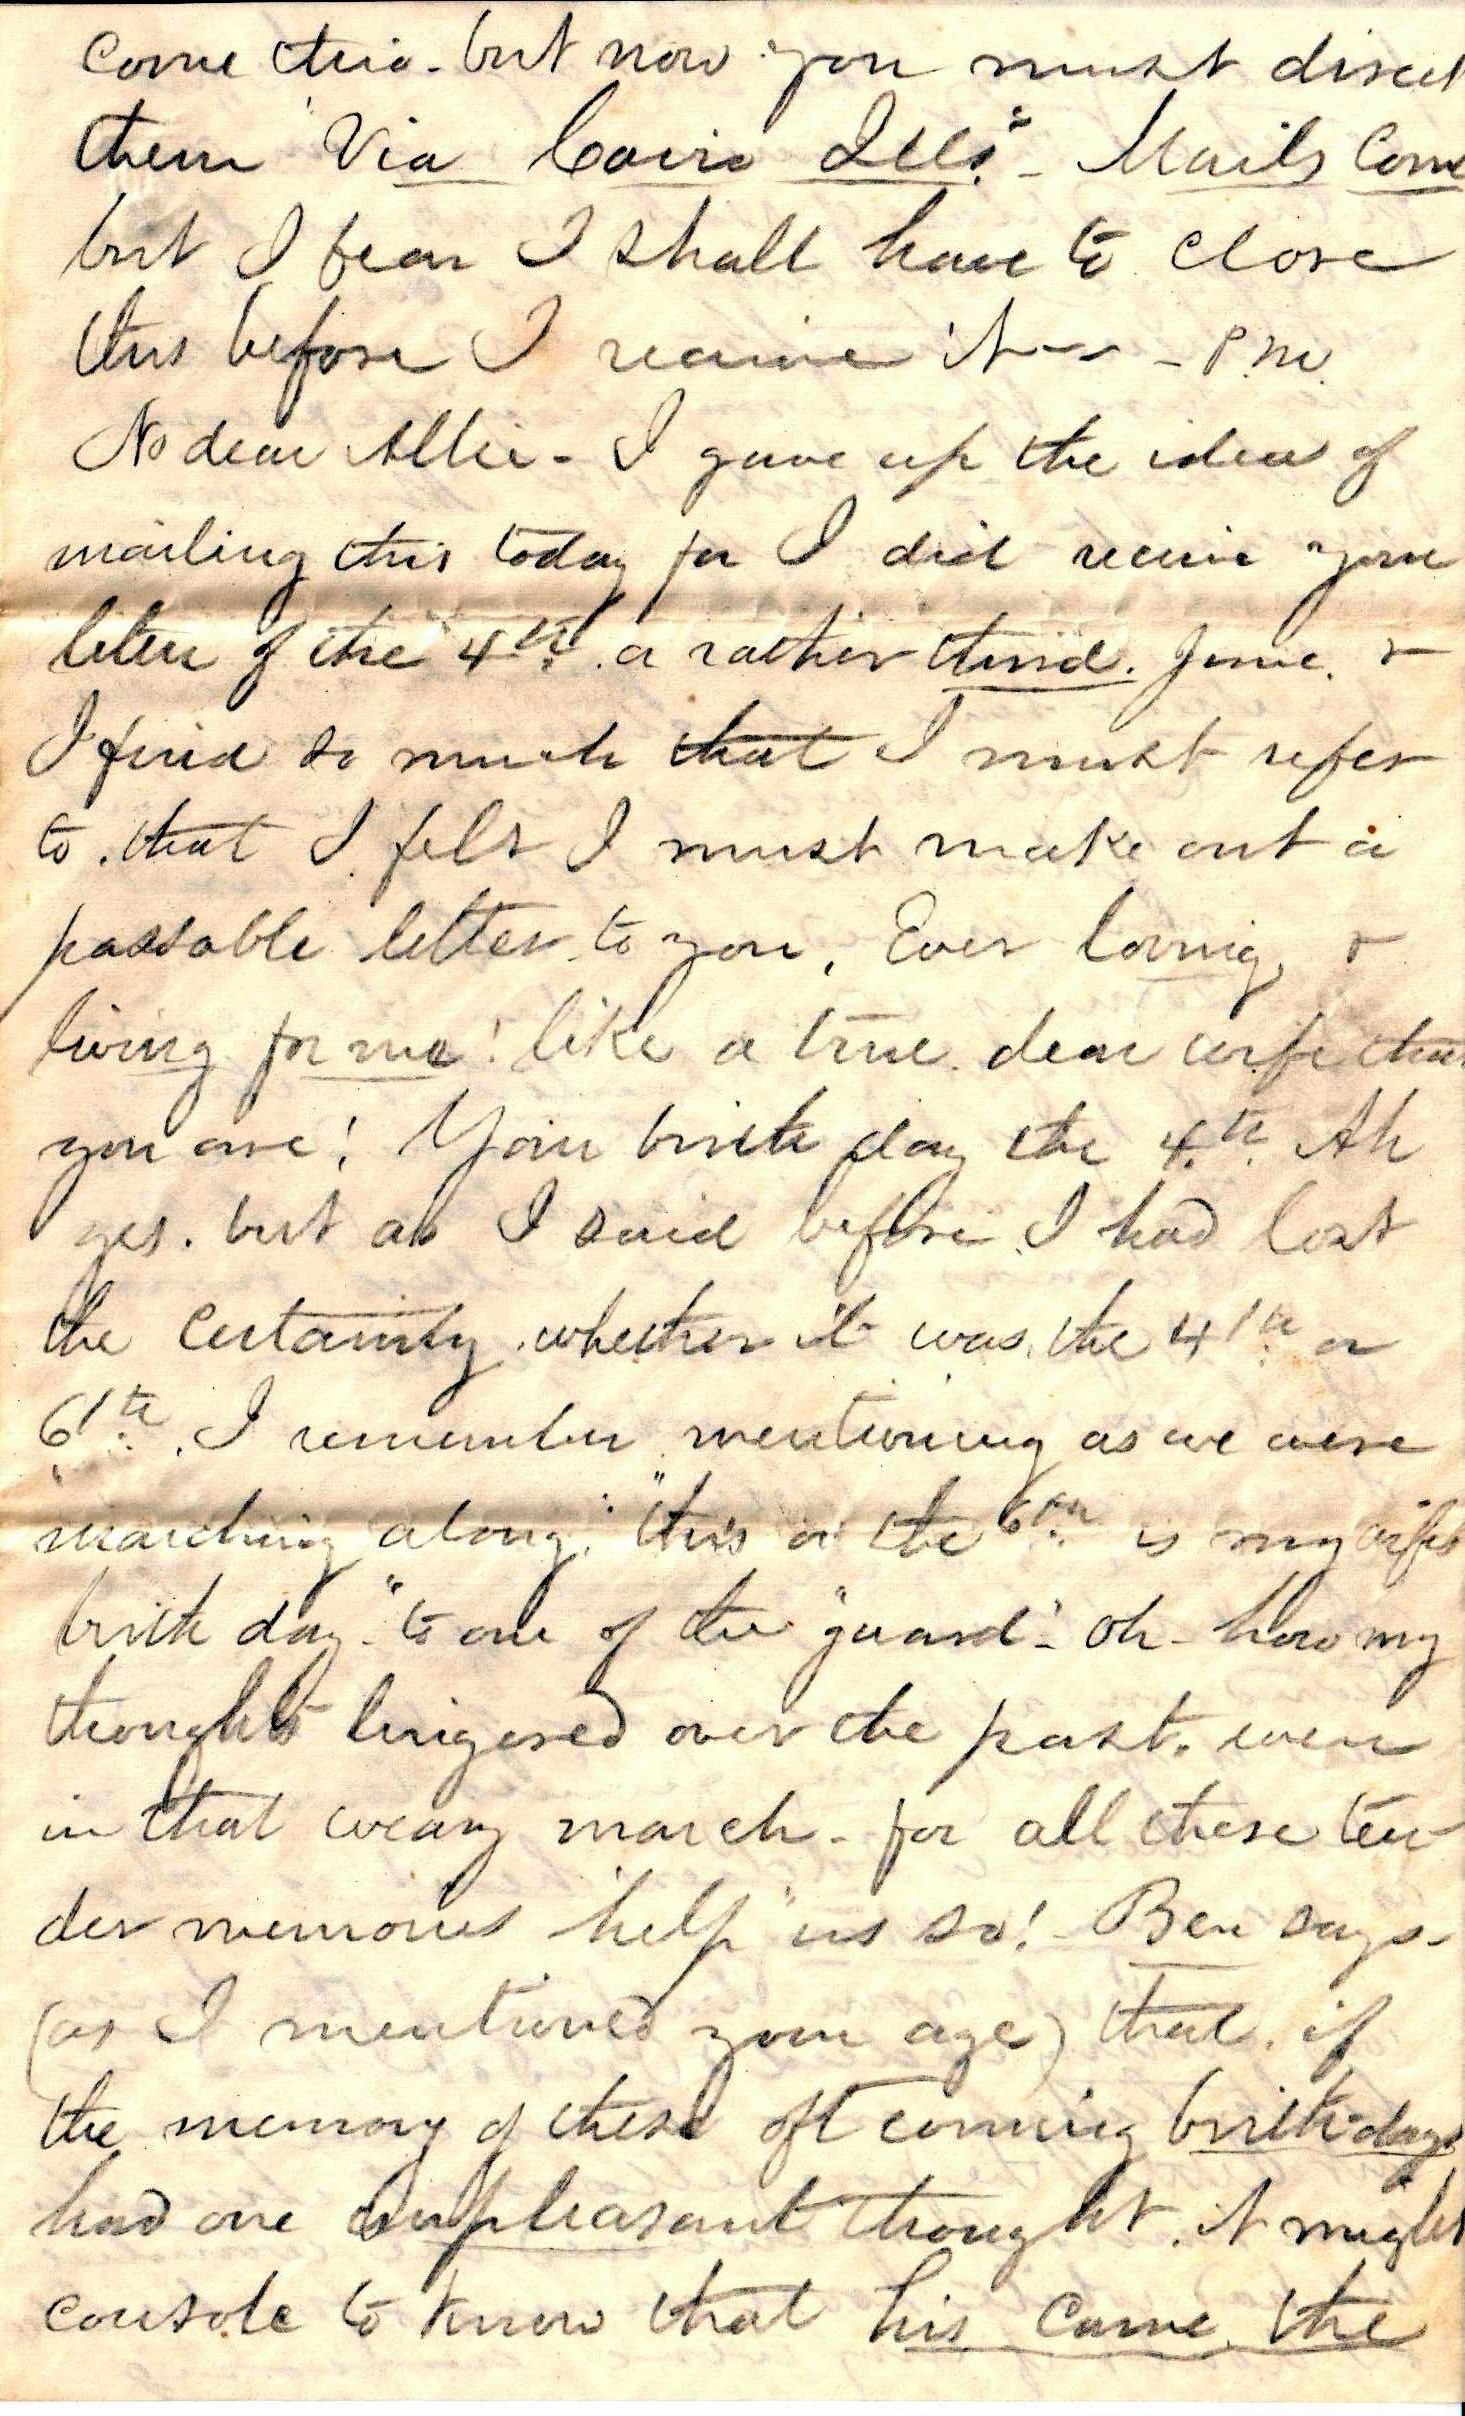 come thro - but now you must direct
them "Via Cairo Ills." - Mails Come
but I fear I shall have to close
this before I receive it - - P.M.
No dear Allie - I gave up the idea of
mailing this today for I did receive your
letter of the 4th. a rather third. June. &
I find so much that I must refer
to. that I felt I must make out a
passable letter to you. Ever loving, &
living for me! like a true dear wife that
you are! Your birth day the 4th. Ah
yes. but as I said before I had lost
the certainty whether it was the 4th or
6th. I remember mentioning as we were
"marching along": "this or the 6th. is my wifes
birth day" - to one of the "guard" - Oh - how my
thoughts lingered over the past. even
in that weary march - for all these ten-
der memories "help" us so! - Ben says -
(as I mentioned your age) that. if
the memory of these oft coming birth-days
had one unpleasant thought. it might
console to know that his came the